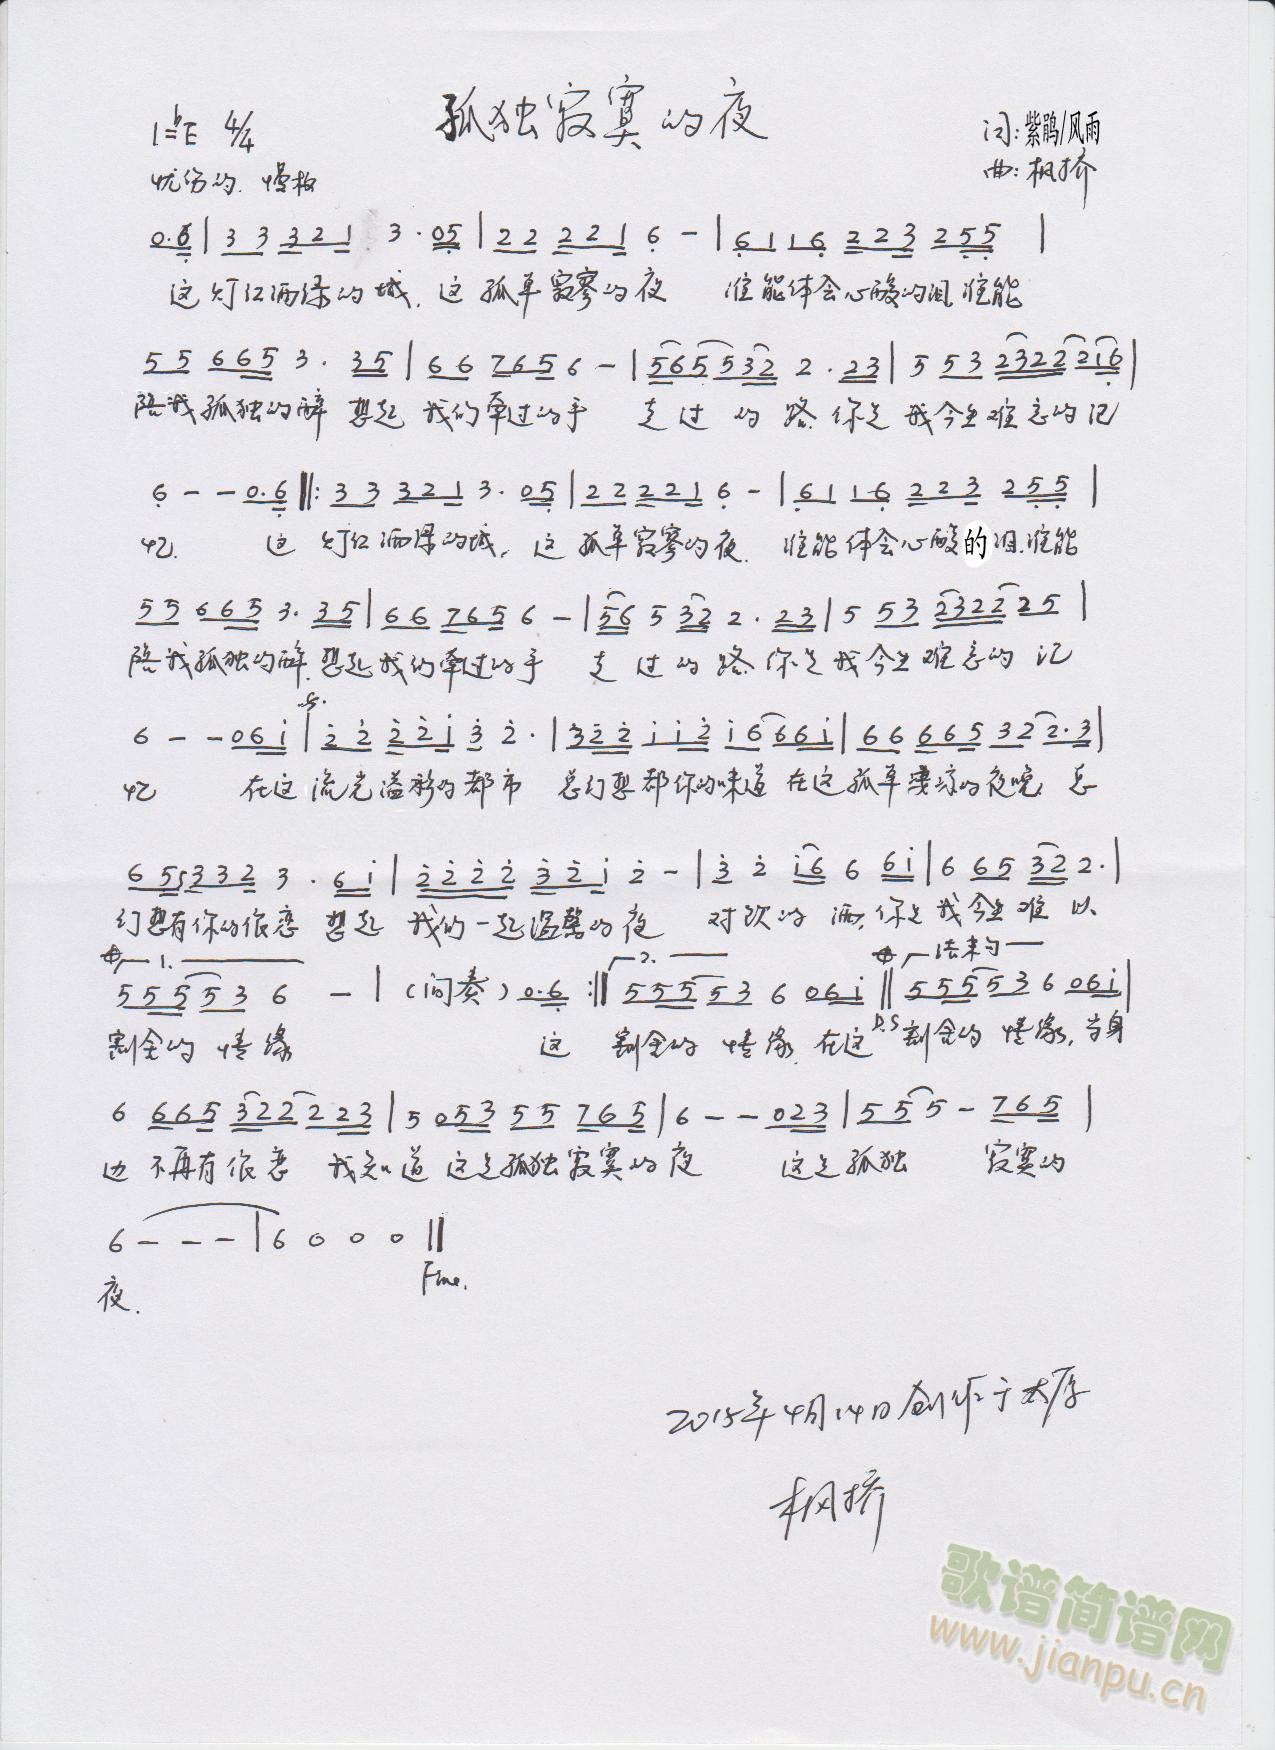 孤独寂寞的夜
1=bE 4/4
词:紫鹃/风雨
忧伤的.慢板
曲:枫桥
0.6|33 3321 3.05|22 2221 6-|6116 223 255|
这灯红酒绿的城,这孤单寂寥的夜 谁能体会心酸的泪,谁能
55 665 3.35|66 765 6-|565532 2.23|5 53 2322216|
陪我孤独的醉 想起 我们牵过的手 走过的路.你是我今生难忘的记
6--0.6‖:33 3321 3.05|22 2221 6-|6116 223 255|
忆. 这灯红酒绿的城,这孤单寂寥的夜. 谁能体会心酸的泪.谁能
55 665 3.35|66 765 6-|56 5 32 2.23|5 53 2322 25|
陪我孤独的醉.想起我们牵过的手 走过的路.你是我今生难忘的记
6--06i|22 221 32.|322 112 16661|66 665 322.3|
忆 在这流光溢彩的都市 总幻想都你的味道 在这孤单凄凉的夜晚.总
6553323.6i|2222 321 2-|3 2 i6 6 6i|6 65 322.|
幻想有你的依恋 想起 我们一起温馨的夜 对饮的酒,你是我今生难以
1. 2. 结束句
555536-|(间奏)0.6:‖555536 06i‖555536 06i|
D.S
割舍的情缘 这 割舍的情缘.在这 割舍的情缘,当身
6 665 322223|5053 55 765|6--023|555-765|
边不再有依恋 我知道这是孤独寂寞的夜 这是孤独 寂寞的
6---|6000‖
夜. Fine.
2015年4月14日创作于太原
枫桥
歌谱简谱网
www.jianpu.cn